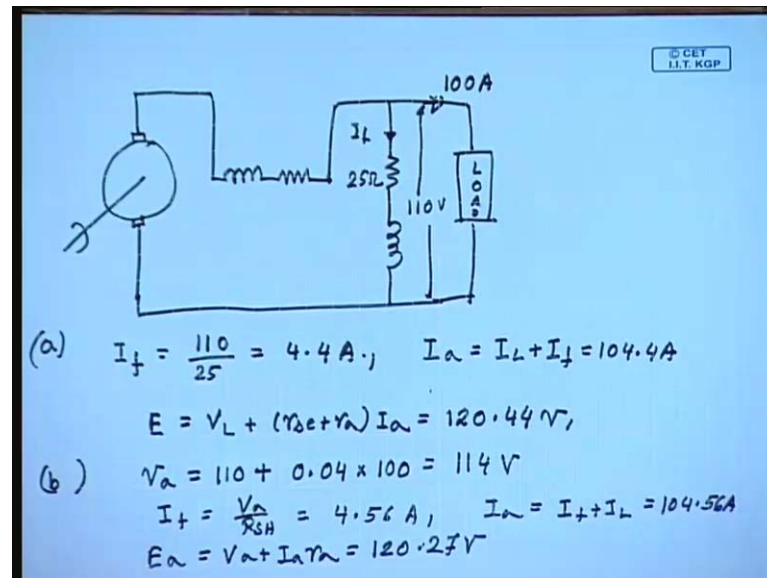 © CET
I.I.T. KGP
100A
I_f
25Ω
110 V
LOAD
(a) I_f = 110/25 = 4.4 A., I_a = I_L + I_f = 104.4A
E = V_L + (r_se + r_a) I_a = 120.44 V,
(b) V_a = 110 + 0.04 × 100 = 114 V
I_f = V_a/R_SH = 4.56 A, I_a = I_f + I_L = 104.56A
E_a = V_a + I_a r_a = 120.27V